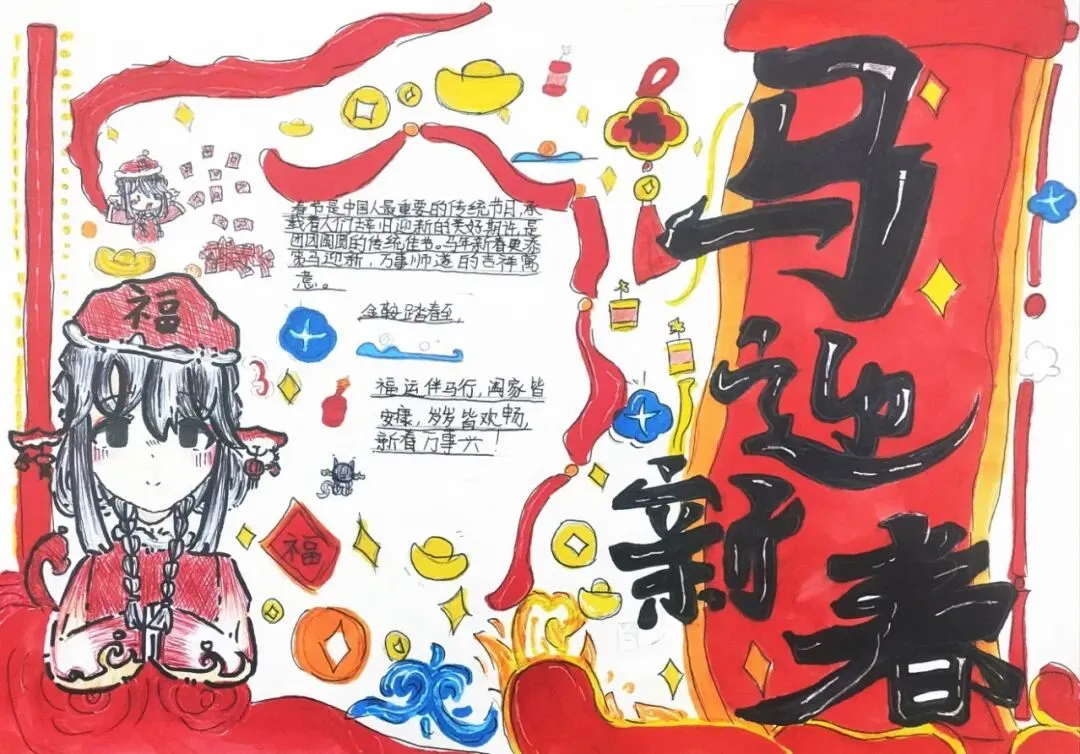 马
迎
新
春
春节是中国人最重要的传统节日,承
载着人们辞旧迎新的美好期许,是
团团圆圆的传统佳节。马年新春更添
策马迎新,万事顺遂的吉祥寓
意。
金鞍踏春至,
福运伴马行,阖家皆
安康,岁岁皆欢畅,
新春万事兴!
福
福